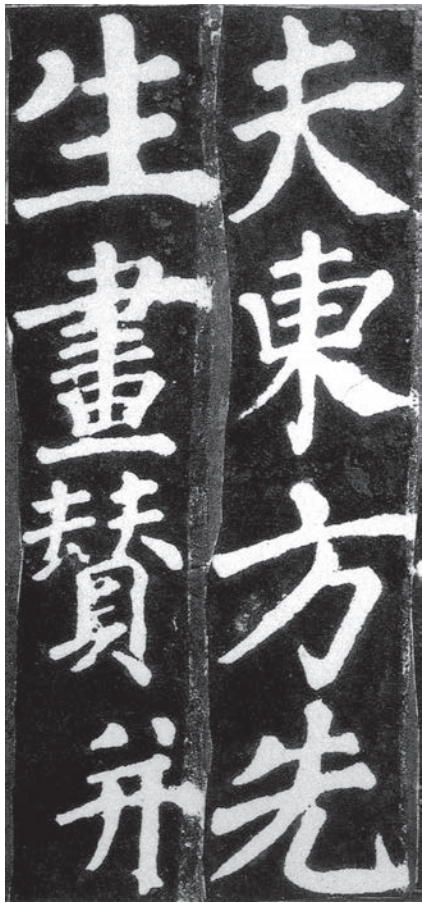 夫東方先
生畫賛并